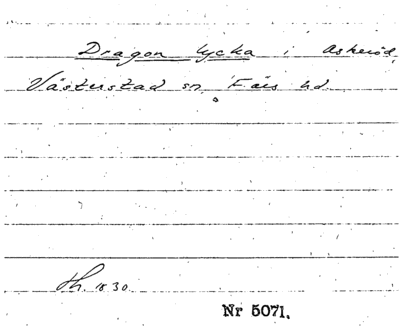 Dragon lycka i Askeröd,
Västerstad sn. Färs hd.
Th. 1830.
Nr 5071.